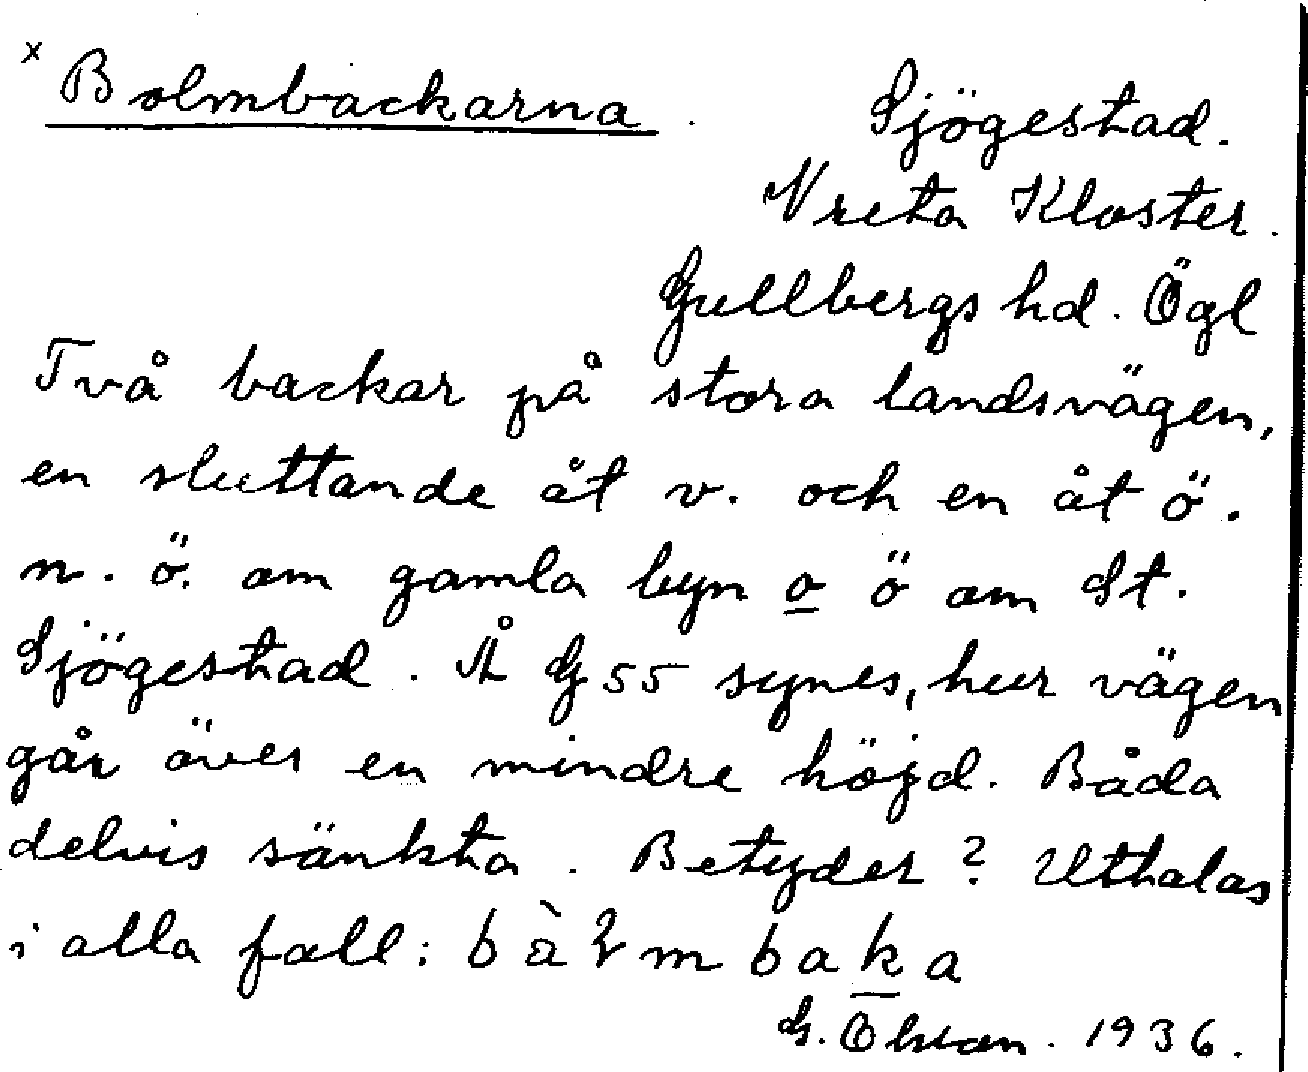 x Bolmbackarna. Sjögestad.
Vreta Kloster.
Gullbergs hd. Ögl
Två backar på stora landsvägen,
en sluttande åt v. och en åt ö.
n. ö. om gamla byn o ö om St.
Sjögestad. Å G 55 synes, hur vägen
går över en mindre höjd. Båda
delvis sänkta. Betyder? Uttalas
i alla fall:
G. 1936.